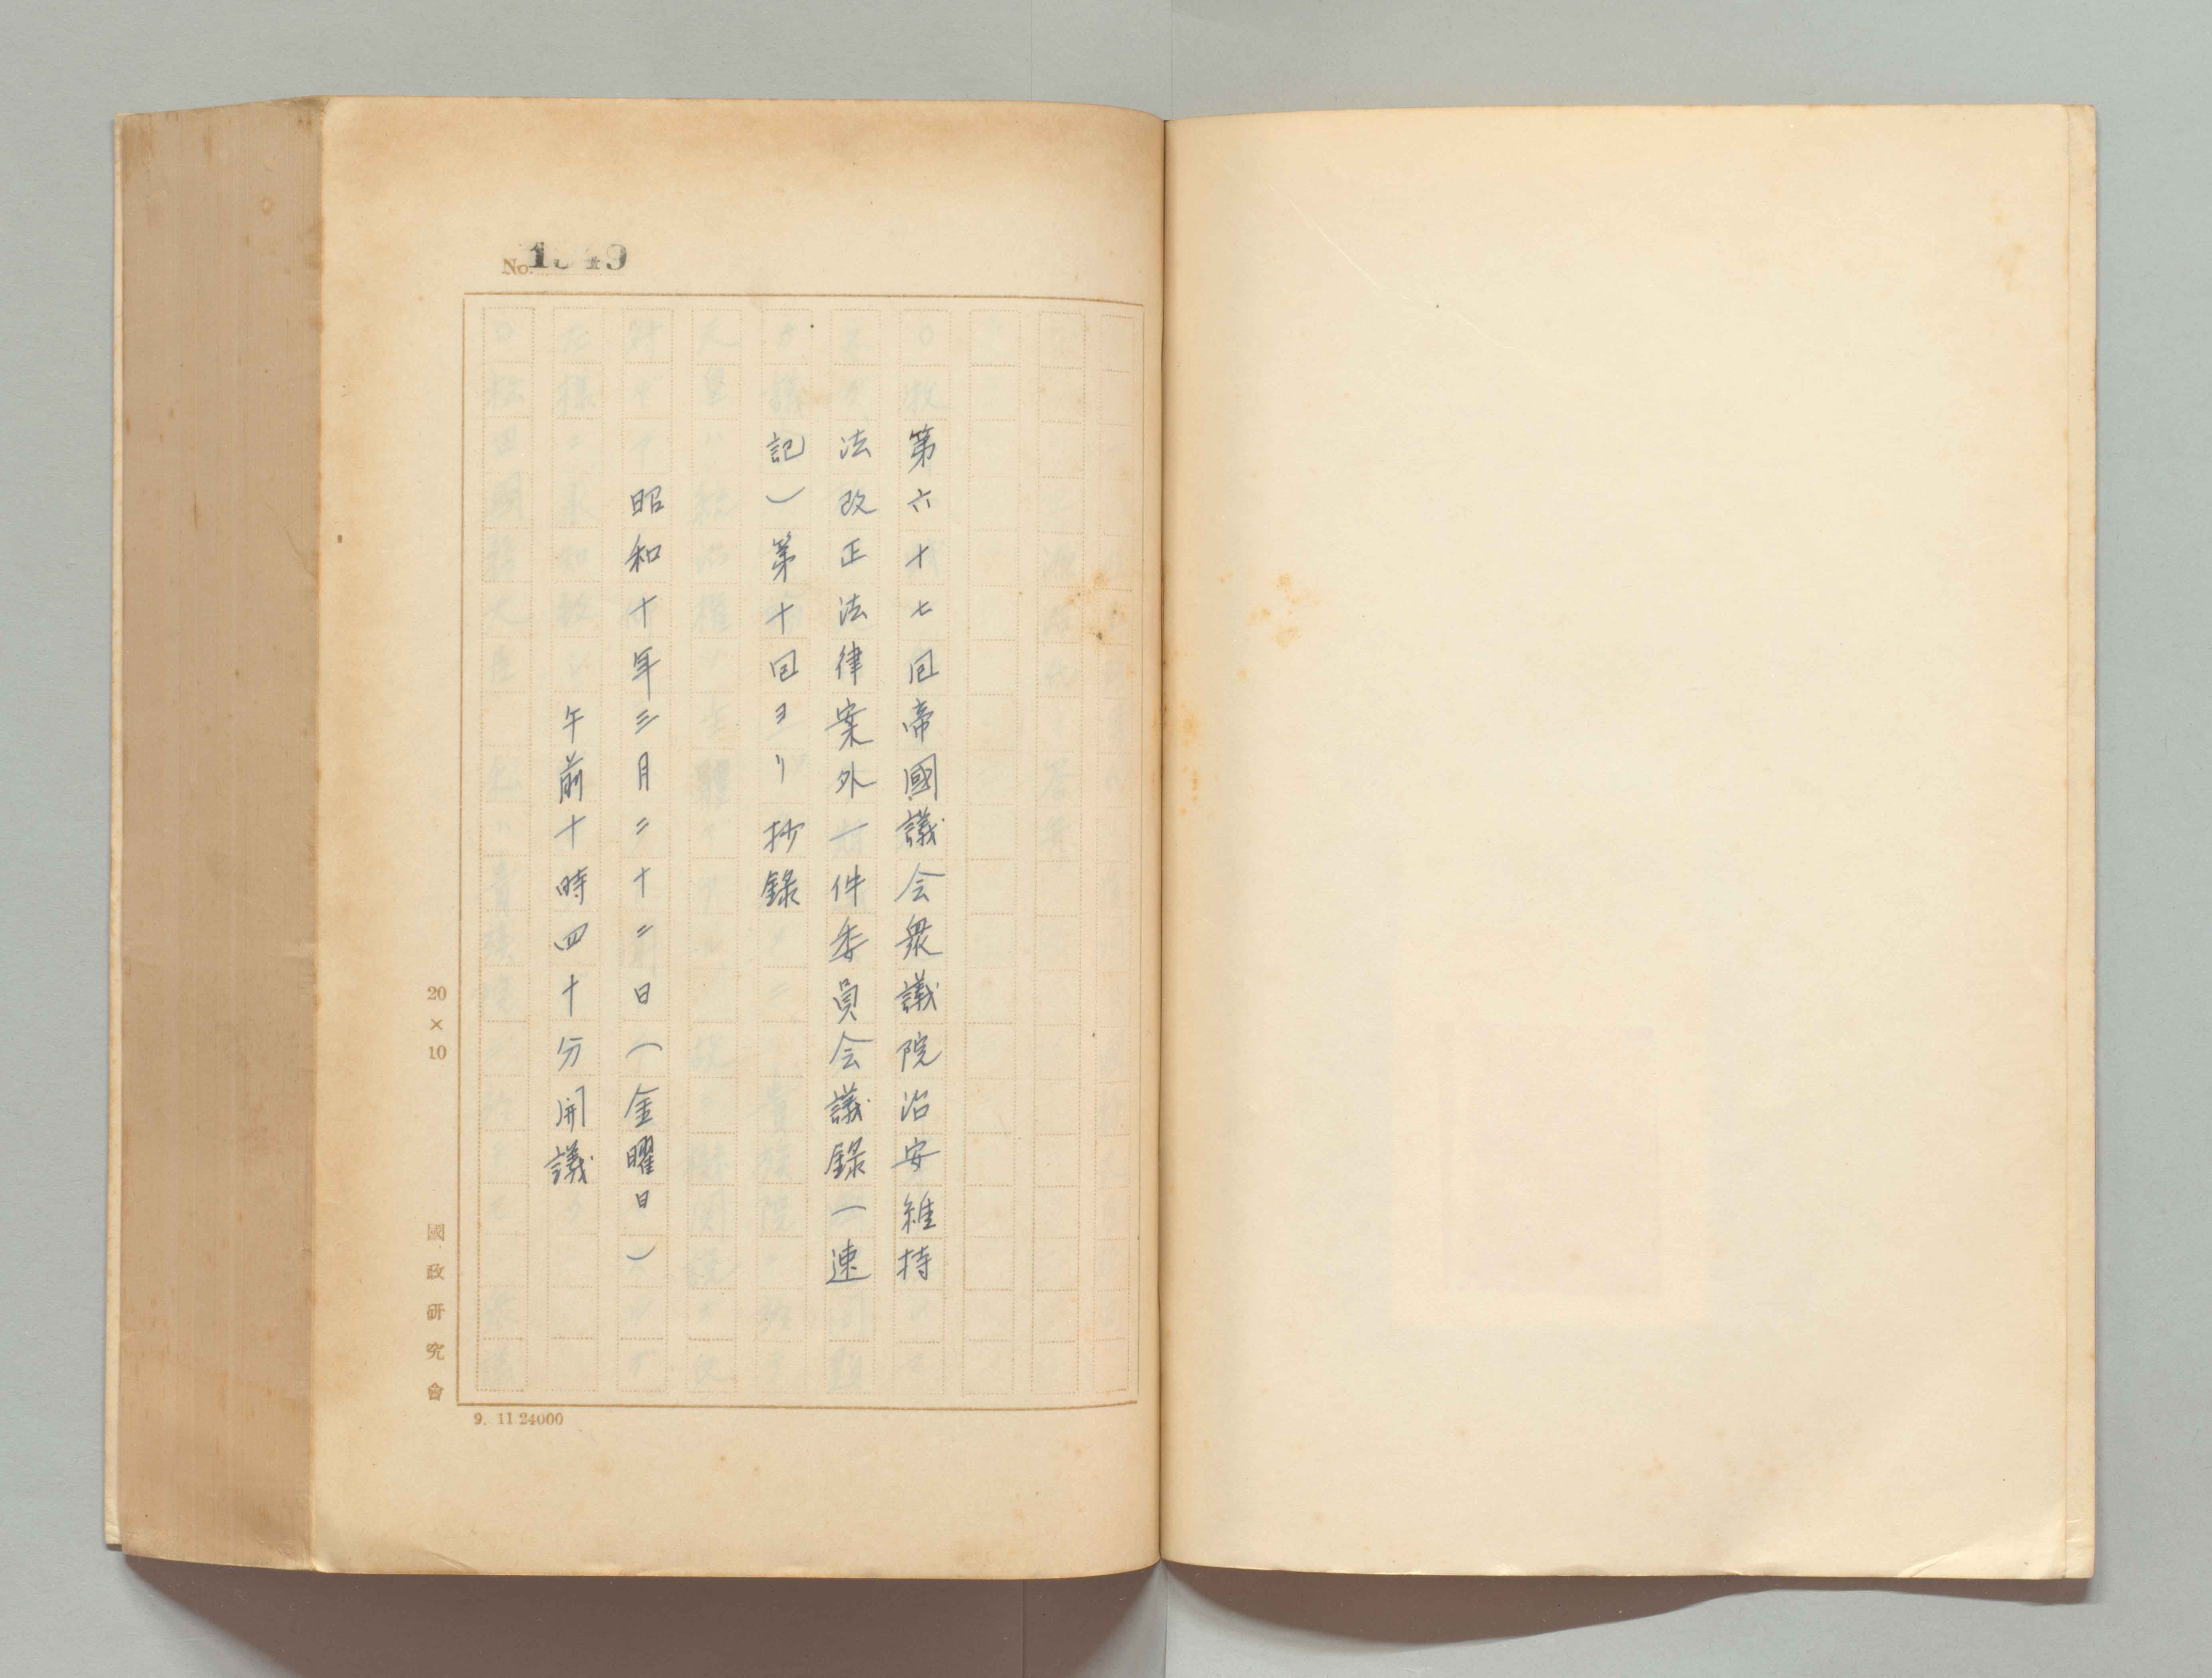 第六十七回帝國議会衆議院治安維持
法改正法律案外一件委員会議錄(速
記)第十回ヨリ抄錄
昭和十年三月二十二日(金曜日)
午前十時四十分開議
No.
20×10
國政研究會
9. 11 24000